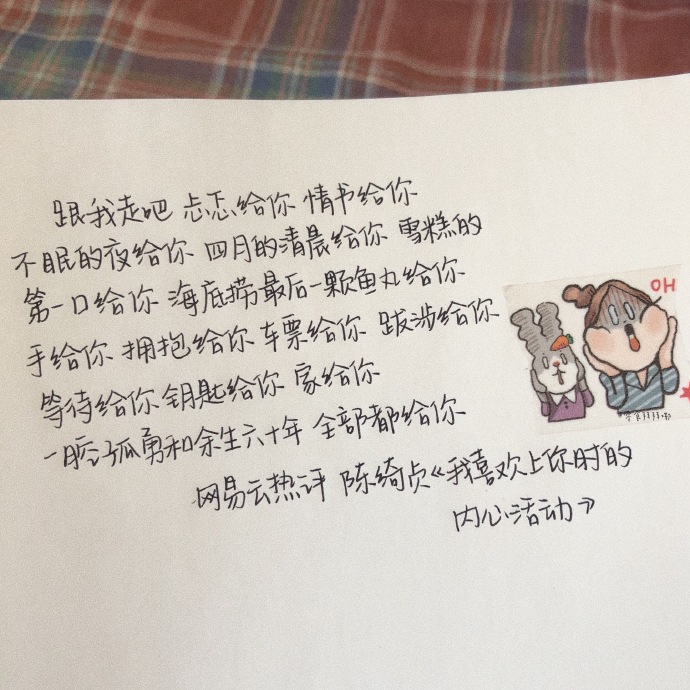 跟我走吧 忐忑给你 情书给你
不眠的夜给你 四月的清晨给你 雪糕的
第一口给你 海底捞最后一颗鱼丸给你
手给你 拥抱给你 车票给你 跋涉给你
等待给你 钥匙给你 家给你
一腔孤勇和余生六十年 全部都给你
网易云热评 陈绮贞《我喜欢上你时的
内心活动》
OH